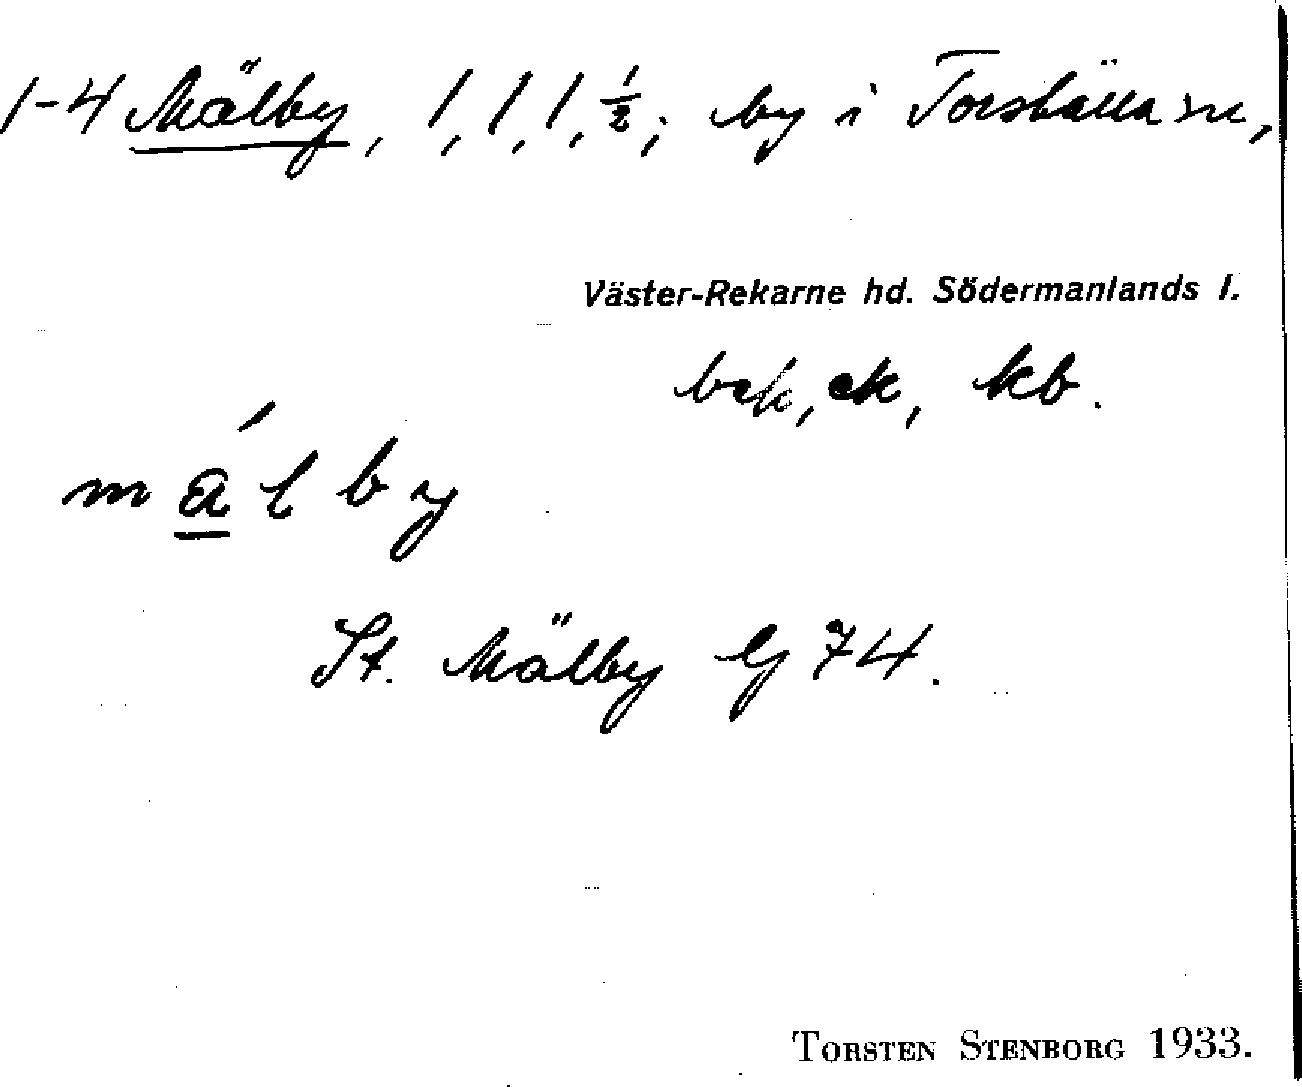 1-4 Mälby, 1, 1, 1, ½; by i Torshälla sn,
Väster-Rekarne hd. Södermanlands l.
bek, ek, kb.
málby
St. Mälby G 74.
TORSTEN STENBORG 1933.